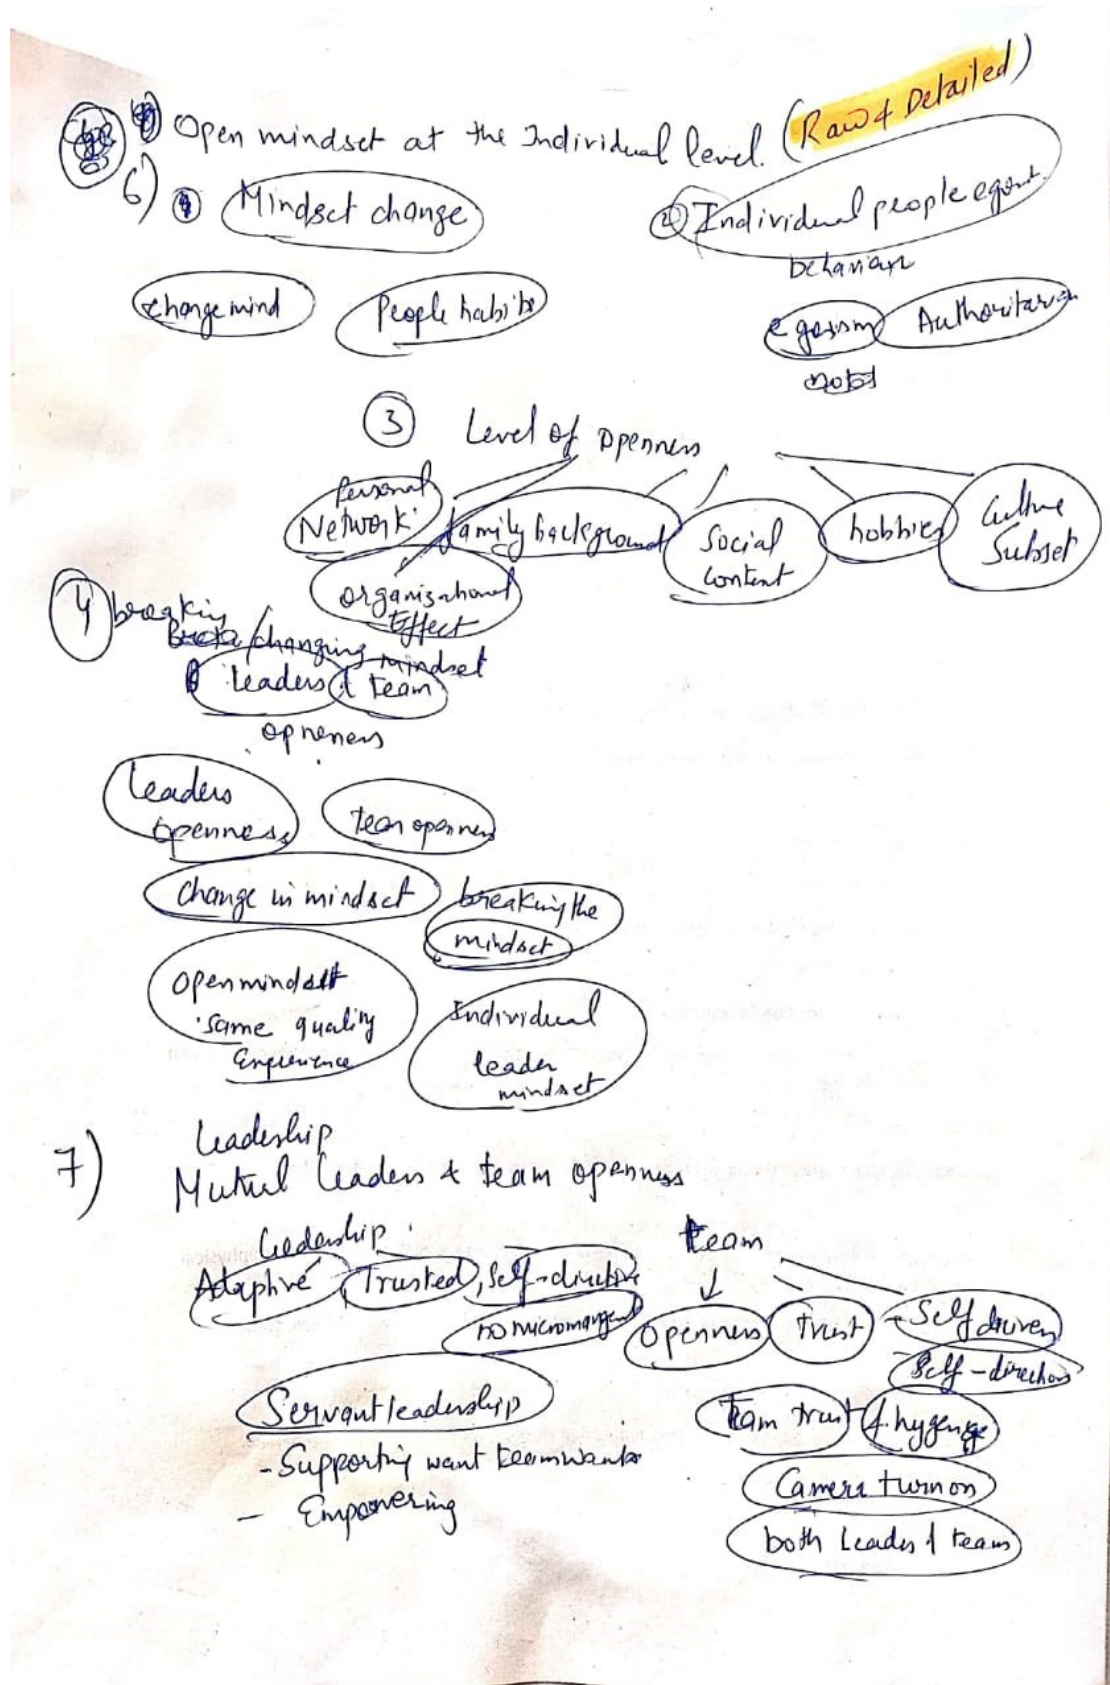 Open mindset at the Individual level. (Raw & Detailed)
6)
Mindset change
② Individual people egoist.
behaviour
change mind
People habits
egoism
Authoritarian
③ Level of openness
Personal
Network
family background
Social
context
hobbies
Culture
Subset
organizational
Effect
4 breaking
/changing mindset
leaders & team
opneness
leaders
openness
team openness
change in mindset
breaking the
mindset
Open mindset
same quality
Experience
Individual
leader
mindset
7) Leadership
Mutul leaders & team openness
leadership
Adaptive
Trusted, Self-directive
no micromangent
Servant leadership
- Supporting want team wants
- Empowering
team
Openness
trust
- Self driven
Self-direction
Team trust
& hygenge
Camera turn on
both Leader & team